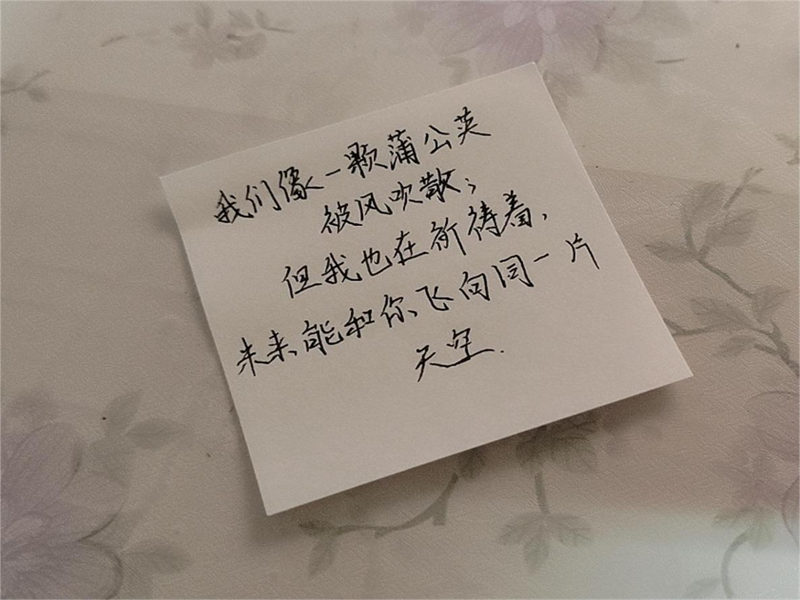 我们像一颗蒲公英
被风吹散；
但我也在祈待着，
未来，能和你飞向同一片
天空.